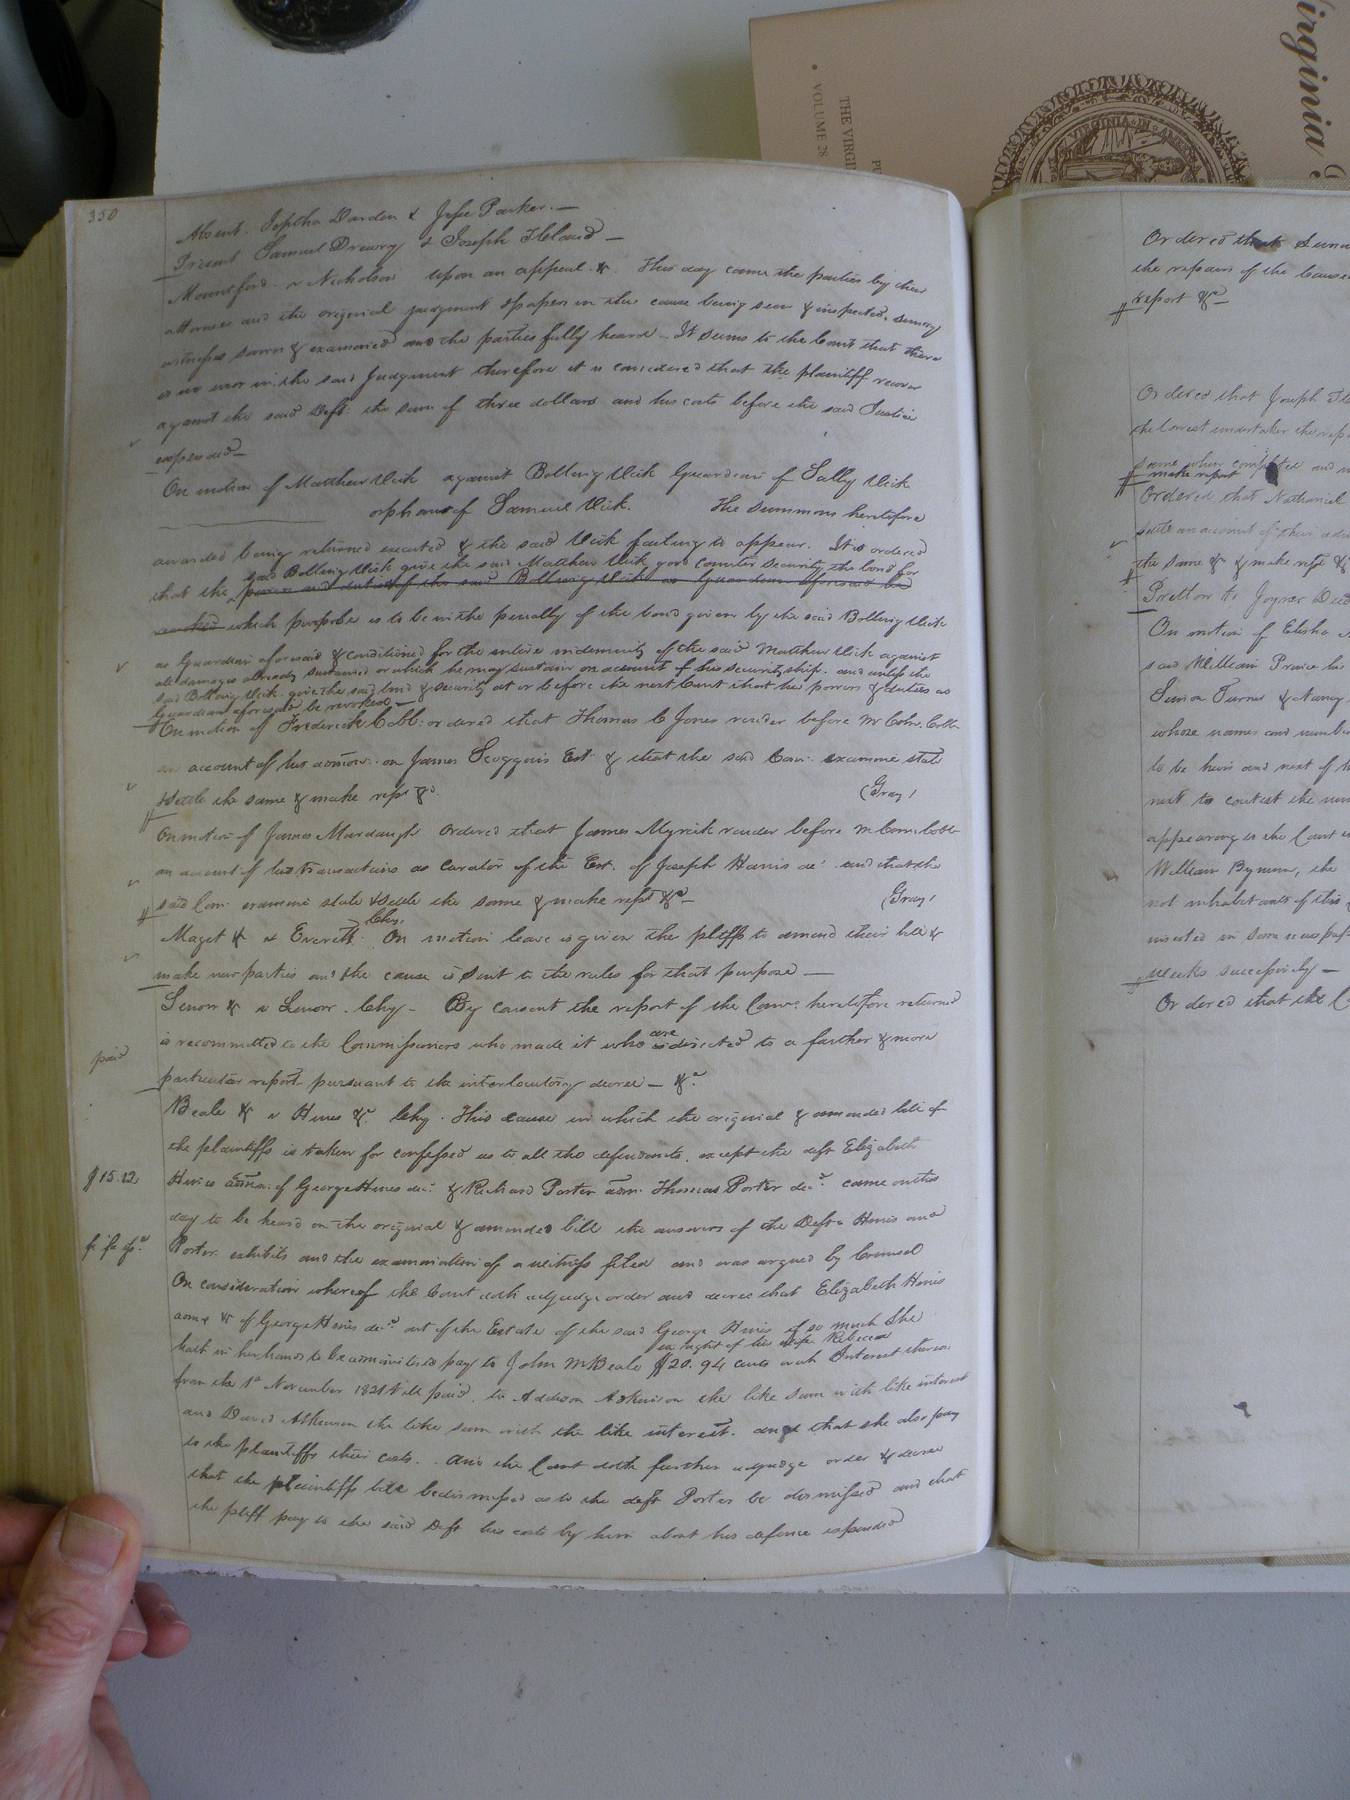 350
Absent. Jeptha Darden & Jesse Parker. —
Present Samuel Drewry & Joseph Holand —
Mountford v Nicholson upon an appeal &c. This day came the parties by their
attornies and the original judgment & papers in the cause being seen & inspected, sundry
witnesses sworn & examined and the parties fully heard — It seems to the Court that there
is no error in the said Judgment therefore it is considered that the plaintiff recover
against the said Deft. the sum of three dollars and his costs before the said Justice
expended —
On motion of Matthew Vick against Bolling Vick Guardian of Sally Vick
orphan of Samuel Vick. The summons heretofore
awarded being returned executed & the said Vick failing to appear. It is ordered
said Bolling Vick give the said Matthew Vick good counter security, the bond for
that the powers and duties of the said Bolling Vick as Guardian aforesaid be
revoked which purpose is to be in the penalty of the bond given by the said Bolling Vick
as Guardian aforesaid & conditioned for the entire indemnity of the said Matthew Vick against
all damages already sustained or which he may sustain on account of his securityship. and unless the
said Bolling Vick give the said bond & security at or before the next Court that his powers & duties as
Guardian aforesaid be revoked —
On motion of Frederick Cobb: ordered that Thomas C Jones render before Mr Comr. Cobb
an account of his admon. on James Scoggins Est. & that the said Com: examine state
& settle the same & make rept &c. (Gray)
On motion of James Murdaugh ordered that James Myrick render before Mr Com. Cobb
an account of his transactions as curator of the Est. of Joseph Harris dec and that the
said Com. examine state & settle the same & make rept &c — (Gray)
Chy.
Maget &c v Everett. On motion leave is given the pltffs to amend their bill &
make new parties and the cause is sent to the rules for that purpose —
Lenow &c v Lenow. Chy — By consent the report of the Comrs. heretofore returned
are
paid
is recommitted to the Commissioners who made it who is directed to a further & more
particular report pursuant to the interlocutory decree — &c.
Beale &c v Hines &c. Chy. This cause in which the original & amended bill of
the plaintiffs is taken for confessed as to all the defendants, except the deft Elizabeth
$15.12
Hines admx. of George Hines dec. & Richard Porter adm. Thomas Porter dec. came on this
day to be heard on the original & amended bill the answers of the Defts Hines and
fi fa
Porter exhibits and the examination of a witness filed and was argued by Counsel
On consideration whereof the Court doth adjudge order and decree that Elizabeth Hines
admx &c of George Hines dec. out of the Estate of the said George Hines if so much she
in right of his wife Rebecca
hath in her hands to be administered pay to John M Beale $20.94 cents with Interest thereon
from the 1st November 1821 till paid, to Addison Atkinson the like sum with like interest
and David Atkinson the like sum with the like interest. and that she also pay
to the plaintiffs their costs. And the Court doth further adjudge order & decree
that the plaintiffs bill be dismissed as to the deft Porter be dismissed and that
the pltff pay to the said Deft his costs by him about his defence expended
Ordered that
the repairs of the
report &c —
Ordered that Joseph
the lowest undertaker the
same when completed and
make report
Ordered that Nathaniel
settle an account of their
the same & make rept &c
On motion of Elisha
said William
whose names and
to be heirs and next of
next to contest the
appearing to the Court
William Bynum, the
not inhabitants of this
inserted in some newspap
weeks successively —
Ordered that the C
irginia
THE VIRGI
VOLUME 28